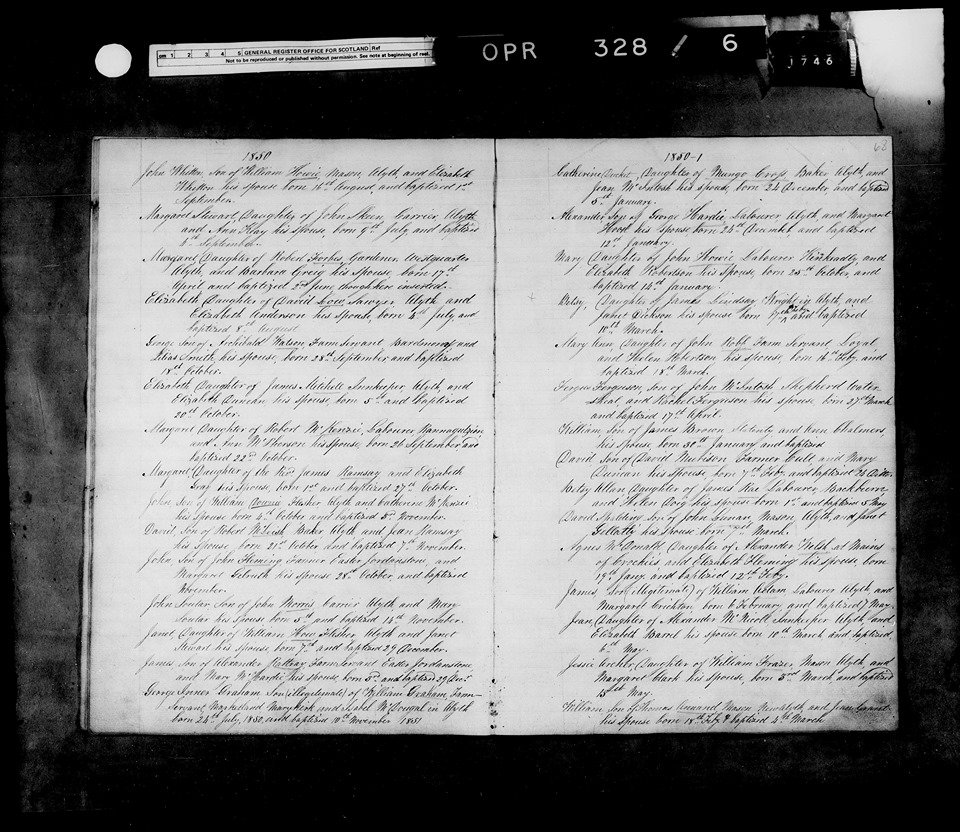 cm 1 2 3 4 5 GENERAL REGISTER OFFICE FOR SCOTLAND Ref
Not to be reproduced or published without permission. See note at beginning of reel.
OPR 328 / 6
1746
1850
John Whitton, Son of William Howie, Mason, Alyth, and Elizabeth
Whitton his spouse born 16th August, and baptized 1st
September.
Margaret Stewart, Daughter of John Skeen, Carrier, Alyth
and Ann Hay his spouse, born 9th July, and baptized
September.
Margaret Daughter of Robert Forbes, Gardener,
Alyth, and Barbara Greig his spouse, born 17th
April and baptized 2nd June though here inserted.
Elizabeth Daughter of David Low, Sawyer, Alyth and
Elizabeth Anderson his Spouse, born 4th July, and
baptized 8th August
George Son of Archibald Watson, Farm Servant, and
Lilias Smith, his spouse, born 28th September and baptized
18th October.
Elizabeth Daughter of James Mitchell Innkeeper Alyth, and
Elizabeth Duncan his spouse, born 5th and baptized
20th October.
Margaret Daughter of Robert McKenzie, Labourer,
and Ann McPherson his spouse, born 26 September, and
baptized 22d October.
Margaret Daughter of the Revd James Ramsay and Elizabeth
his Spouse, born 1st and baptized 27th October.
John Son of William Downie Flesher Alyth and Catherine McKenzie
his Spouse born October and baptized 3d November.
David, Son of Robert McLeish Baker Alyth and Jean Ramsay
his spouse, born 21st October and baptized 7th November.
John, Son of John Fleming Farmer Easter Jordanstone, and
Margaret his spouse 28th October and baptized
November.
John Soutar, Son of John Morris Carrier Alyth and Mary
Soutar his Spouse born 5th and baptized 14th November.
Janet Daughter of William How Flesher Alyth and Janet
Stewart his spouse, born 7th and baptized 29 December.
James Son of Alexander Rattray Farm Servant Easter Jordanstone,
and Mary McHardie his spouse, born 5th and baptized 29 Decr
George Inner Graham Son (illegitimate) of William Graham Farm
Servant, Marykirk, and Isabel McDougal in Alyth
born 24th July, 1850, and baptized 10th November 1851
68
1850-1
Catherine Daughter of Mungo Crop, Baker Alyth and
Jean McIntosh his spouse, born 24 December and baptized
5th January.
Alexander Son of George Hardie, Labourer Alyth, and Margaret
Hood his Spouse born 24th December, and baptized
12th January.
Mary Daughter of John Howie Labourer and
Elizabeth Robertson his Spouse, born 25th October, and
baptized 14th January.
Betsy, Daughter of James Lindsay Wright in Alyth, and
Janet Dickson his spouse born 17th Feby and baptized
10th March.
Mary Ann, Daughter of John Robb Farm Servant Loyal,
and Helen Robertson his spouse, born 16th Feby, and
baptized 18th March.
Fergus Ferguson, Son of John McIntosh Shepherd
and Rachel Ferguson his spouse, born 27th March
and baptized 17th April.
William, Son of James Brown and Ann Chalmers,
his spouse, born 30th January and baptized
David Son of David Farmer and Mary
Duncan his spouse, born 7th Feby and baptized
Betsy Allan Daughter of James Rae Labourer, Blackburn,
and Helen Doig his spouse born 1st and baptized May
David Milling Son of John Mason Alyth, and Janet
Gellatly his spouse, born 7th March.
Agnes McDonald, Daughter of Alexander Welsh at Mains
of Crockies and Elizabeth Fleming his spouse, born
19th Jany and baptized 12th Feby.
James, Son (illegitimate) of William Adam Labourer Alyth, and
Margaret Crichton, born 6 February, and baptized May.
Jean, Daughter of Alexander McNicoll Innkeeper Alyth, and
Elizabeth his spouse born 10th March and baptized
6th May.
Jessie Daughter of William Frazer, Mason Alyth and
Margaret Clark his spouse, born 3rd March, and baptized
May.
William Son of Thomas Annand Mason New Alyth, and
his spouse born 18th Feby & baptized 4th March